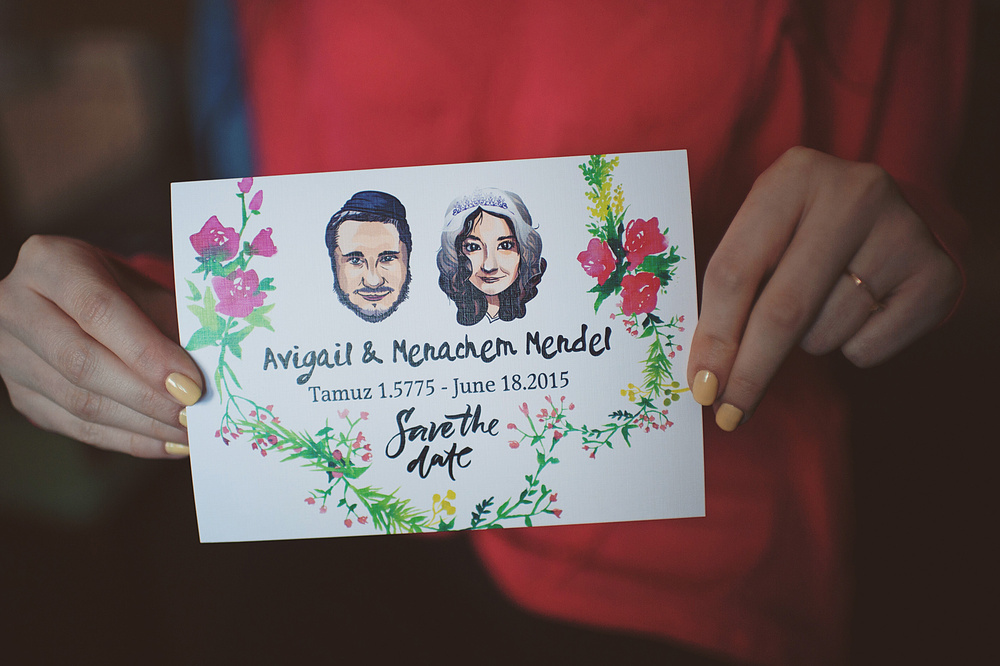 Avigail & Menachem Mendel
Tamuz 1.5775 - June 18.2015
Save the
date